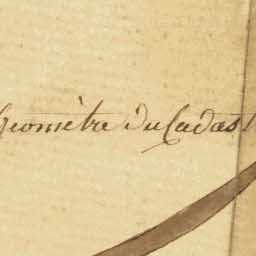 Geomètre Du Cadast